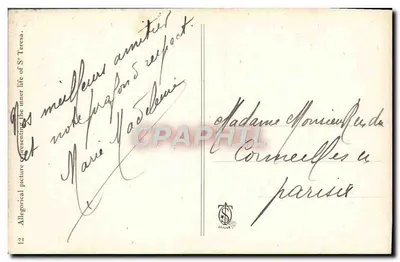 Nos meilleurs amitiés
et notre profond respect.
Marie Madeleine
12 Allegorical picture representing the inner life of St Teresa.
Madame Monsieur
Cormeilles
parisis
CPAPHIL